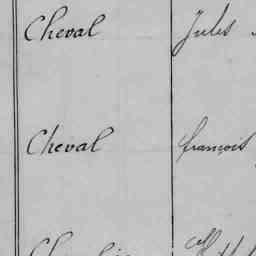 Cheval Jules
Cheval françois